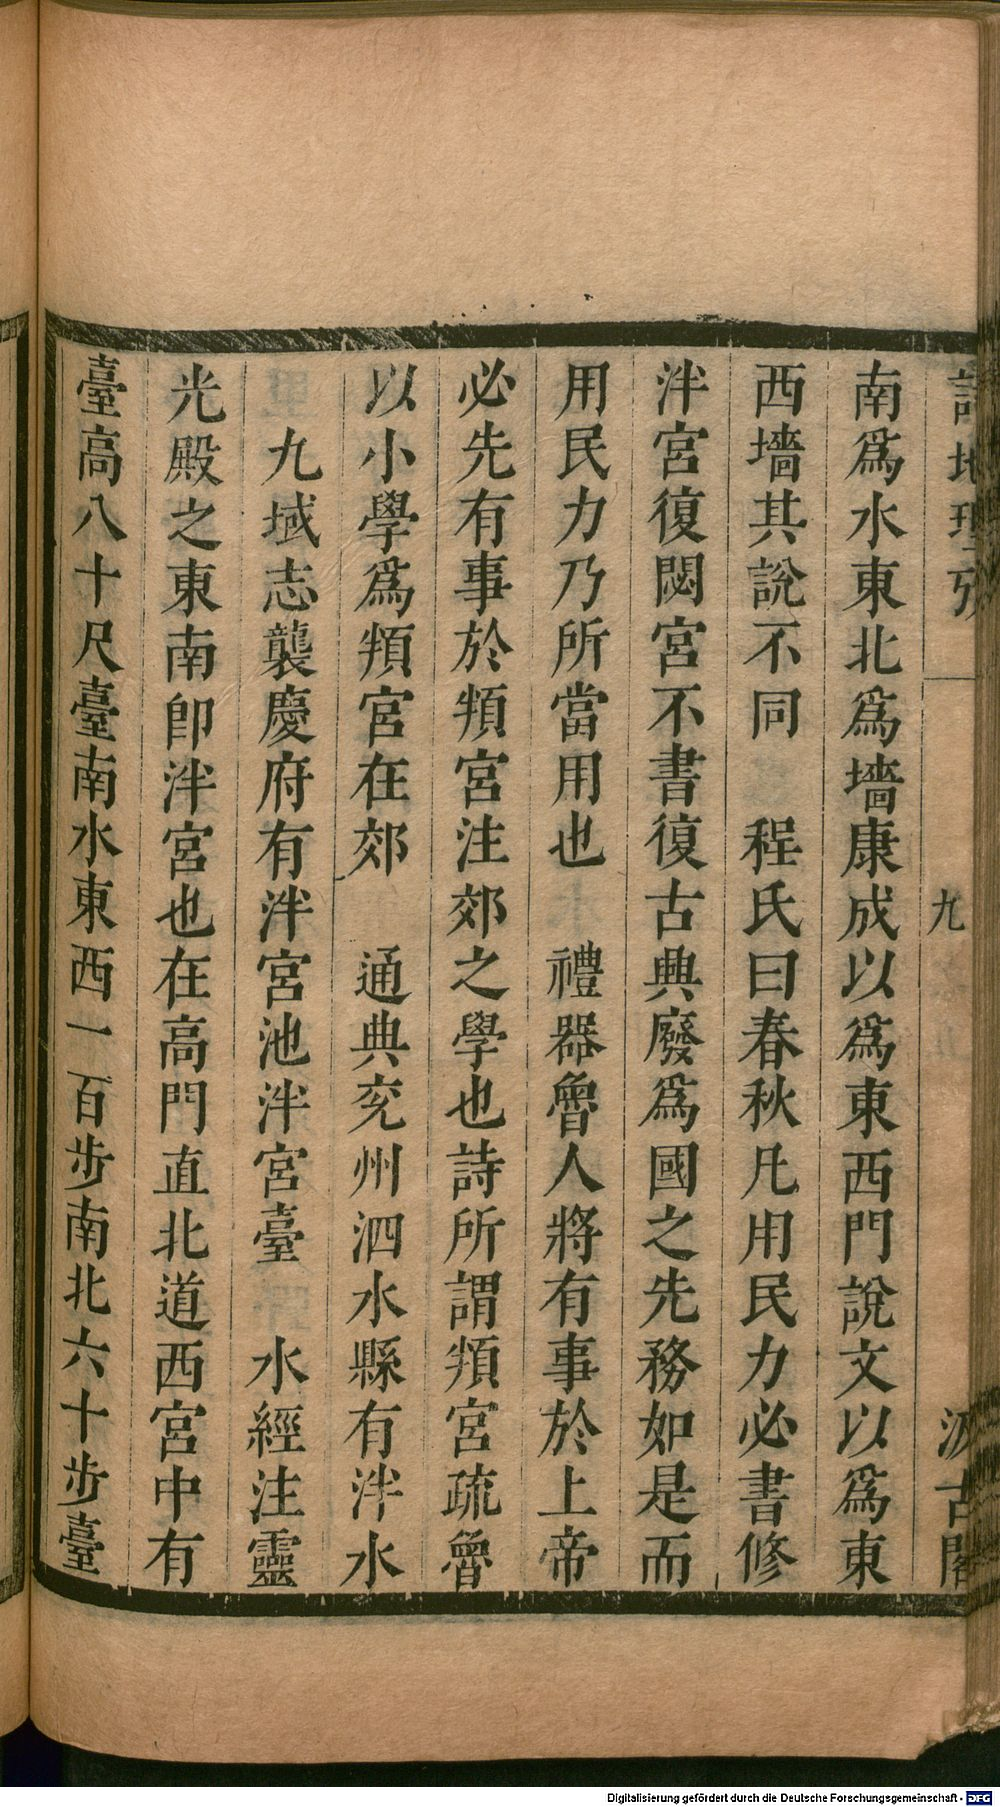 詩地理攷
九
汲古閣
南爲水東北爲墻康成以爲東西門說文以爲東
西墻其說不同　程氏曰春秋凡用民力必書修
泮宮復閟宮不書復古興廢爲國之先務如是而
用民力乃所當用也　禮器魯人將有事於上帝
必先有事於頖宮注郊之學也詩所謂頖宮疏魯
以小學爲頖宮在郊　通典兖州泗水縣有泮水
九域志襲慶府有泮宮池泮宮臺　水經注靈
光殿之東南卽泮宮也在高門直北道西宮中有
臺高八十尺臺南水東西一百步南北六十步臺
Digitalisierung gefördert durch die Deutsche Forschungsgemeinschaft - DFG